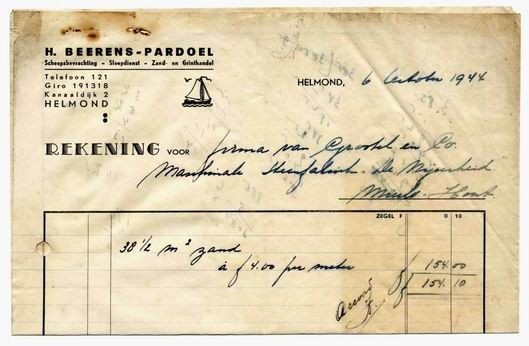 H. BEERENS-PARDOEL
Scheepsbevrachting - Sleepdienst - Zand- en Grinthandel
Telefoon 121
Giro 191318
Kanaaldijk 2
HELMOND
HELMOND, 6 October 1944
REKENING VOOR Firma van Grootel en Co.
Machinale Steenfabriek De Nijverheid
Mierlo-Hout
ZEGEL F 0 10
38 1/2 m² zand
à f 4.00 per meter f 154.00
Accoord f 154.10